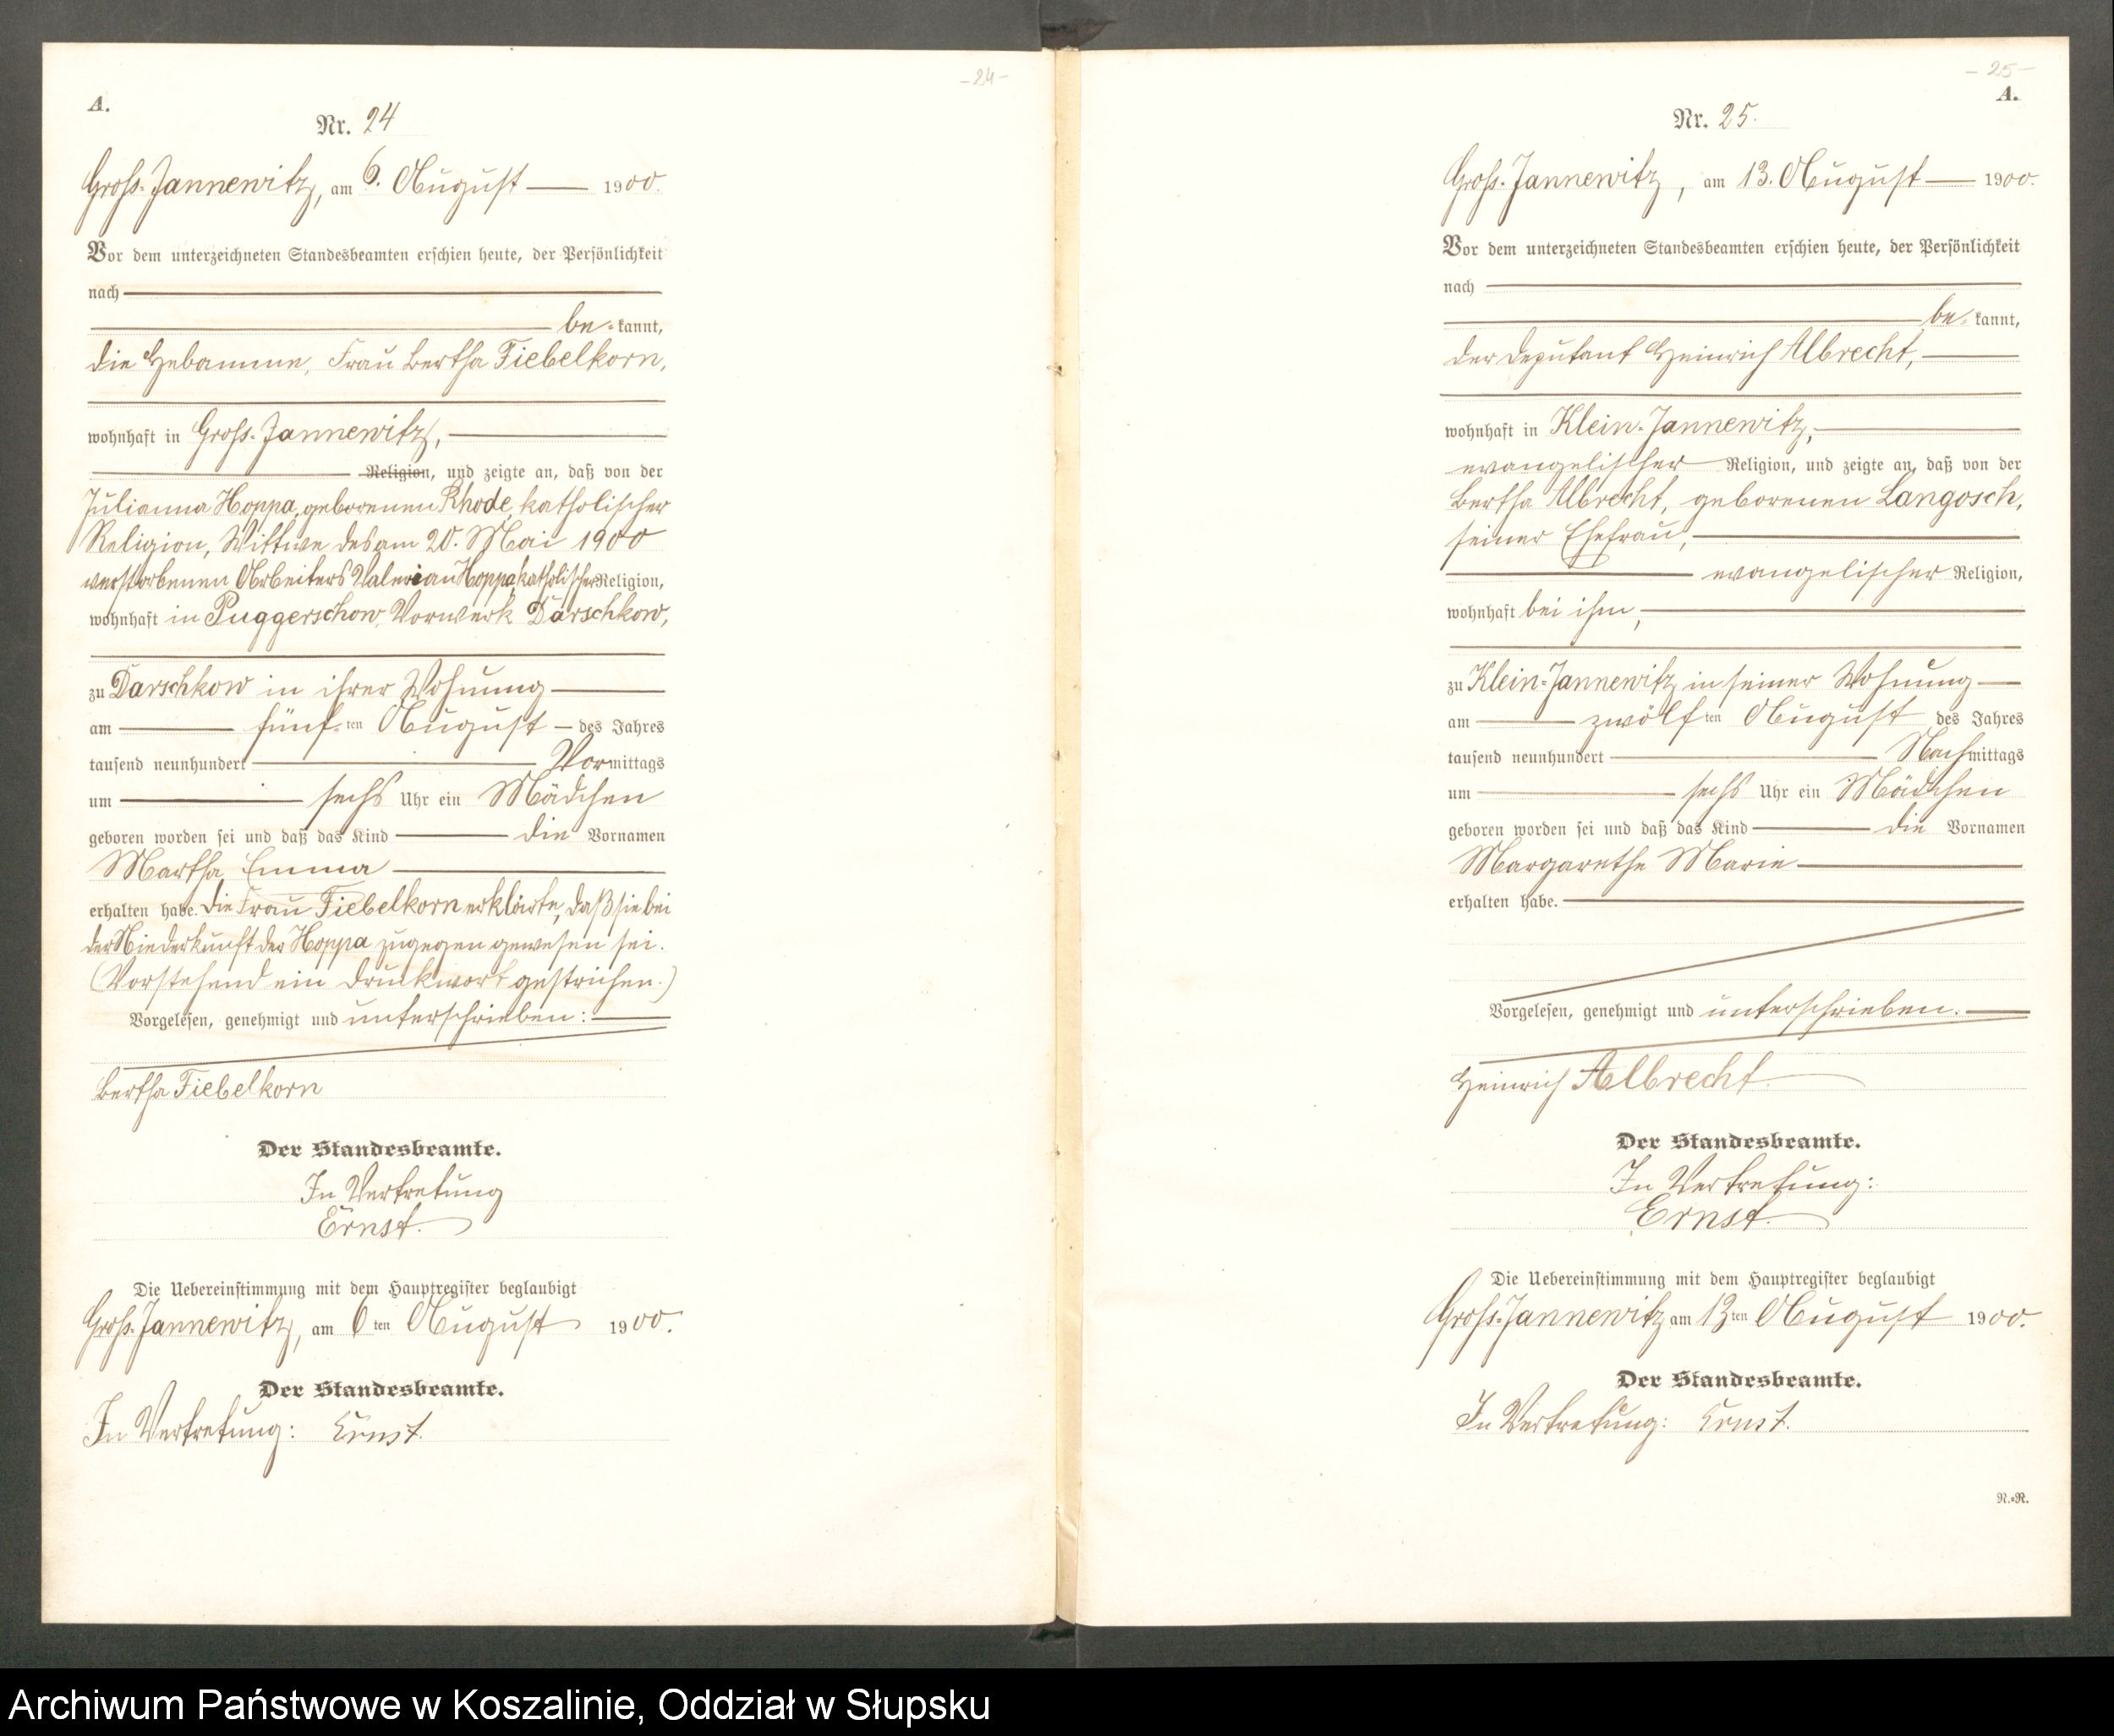 -24-
A.
Nr. 24
Gross-Jannewitz, am 6. August 1900.
Vor dem unterzeichneten Standesbeamten erschien heute, der Persönlichkeit
nach
be-kannt,
die Hebamme, Frau Bertha Fiebelkorn,
wohnhaft in Gross-Jannewitz,
Religion, und zeigte an, daß von der
Julianna Hoppa, geborenen Rhode, katholischer
Religion, Wittwe des am 20. Mai 1900
verstorbenen Arbeiters Valerian Hoppa, katholischer Religion,
wohnhaft in Puggerschow Vorwerk Darschkow,
zu Darschkow in ihrer Wohnung
am fünf-ten August des Jahres
tausend neunhundert Vormittags
um sechs Uhr ein Mädchen
geboren worden sei und daß das Kind die Vornamen
Martha Emma
erhalten habe. Die Frau Fiebelkorn erklärte, daß sie bei
der Niederkunft der Hoppa zugegen gewesen sei.
(Vorstehend ein Druckwort gestrichen.)
Vorgelesen, genehmigt und unterschrieben:
Bertha Fiebelkorn
Der Standesbeamte.
In Vertretung
Ernst.
Die Uebereinstimmung mit dem Hauptregister beglaubigt
Gross-Jannewitz, am 6ten August 1900.
Der Standesbeamte.
In Vertretung: Ernst.
-25-
A.
Nr. 25.
Gross-Jannewitz, am 13. August 1900.
Vor dem unterzeichneten Standesbeamten erschien heute, der Persönlichkeit
nach
be-kannt,
der Deputant Heinrich Albrecht,
wohnhaft in Klein-Jannewitz,
evangelischer Religion, und zeigte an, daß von der
Bertha Albrecht, geborenen Langosch,
seiner Ehefrau,
evangelischer Religion,
wohnhaft bei ihm,
zu Klein-Jannewitz in seiner Wohnung
am zwölften August des Jahres
tausend neunhundert Nachmittags
um sechs Uhr ein Mädchen
geboren worden sei und daß das Kind die Vornamen
Margarethe Marie
erhalten habe.
Vorgelesen, genehmigt und unterschrieben.
Heinrich Albrecht
Der Standesbeamte.
In Vertretung:
Ernst.
Die Uebereinstimmung mit dem Hauptregister beglaubigt
Gross-Jannewitz am 13ten August 1900.
Der Standesbeamte.
In Vertretung: Ernst.
N.=R.
Archiwum Państwowe w Koszalinie, Oddział w Słupsku